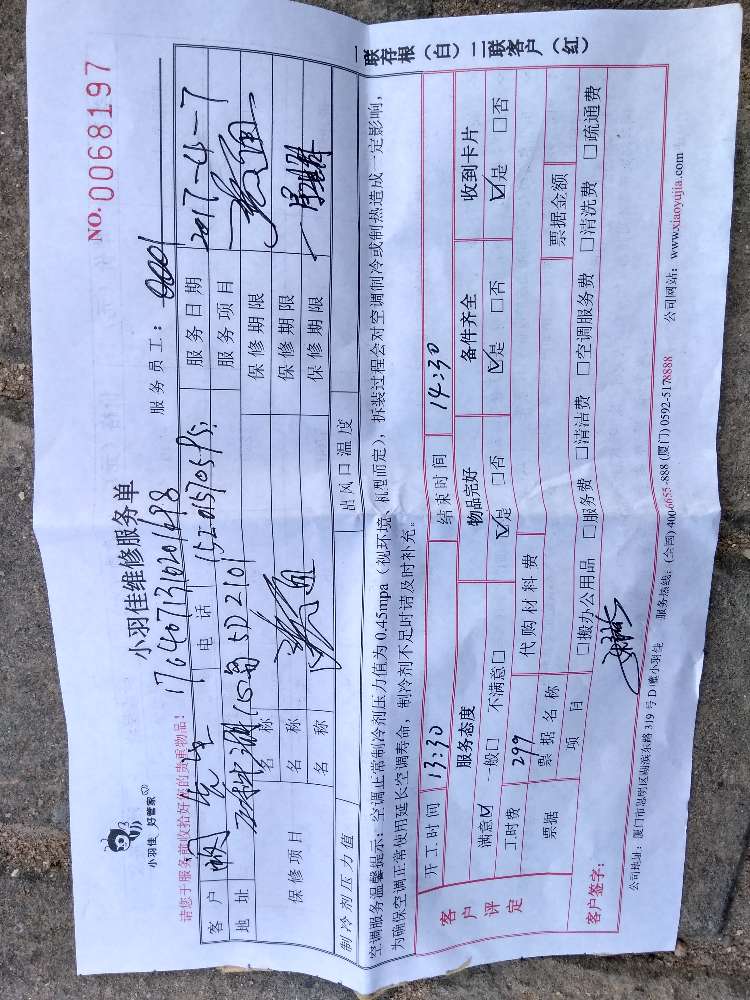 小羽佳 好管家
小羽佳维修服务单
NO.0068197
请您于服务前收拾好您的贵重物品!
服务员工:
客户 电话 服务日期 2017-4-7
地址 5D2101 服务项目
保修项目 名称 保修期限
名称 保修期限
名称 保修期限
制冷剂压力值 出风口温度
空调服务温馨提示:空调正常制冷剂压力值为0.45mpa(视环境、机型而定),拆装过程会对空调制冷或制热造成一定影响,
为确保空调正常使用延长空调寿命,制冷剂不足时请及时补充。
客户评定 开工时间 13:30 结束时间 14:30
服务态度 物品完好 备件齐全 收到卡片
满意☑ 一般□ 不满意□ ☑是 □否 ☑是 □否 ☑是 □否
工时费 299 代购材料费
票据 票据名称 票据金额
项目 □搬办公用品 □服务费 □清洁费 □空调服务费 □清洗费 □疏通费
客户签字:
公司地址:厦门市思明区湖滨东路319号D幢小羽佳 服务热线:(全国)400-6655-888 (厦门)0592-5178888 公司网站:www.xiaoyujia.com
一联存根(白)二联客户(红)